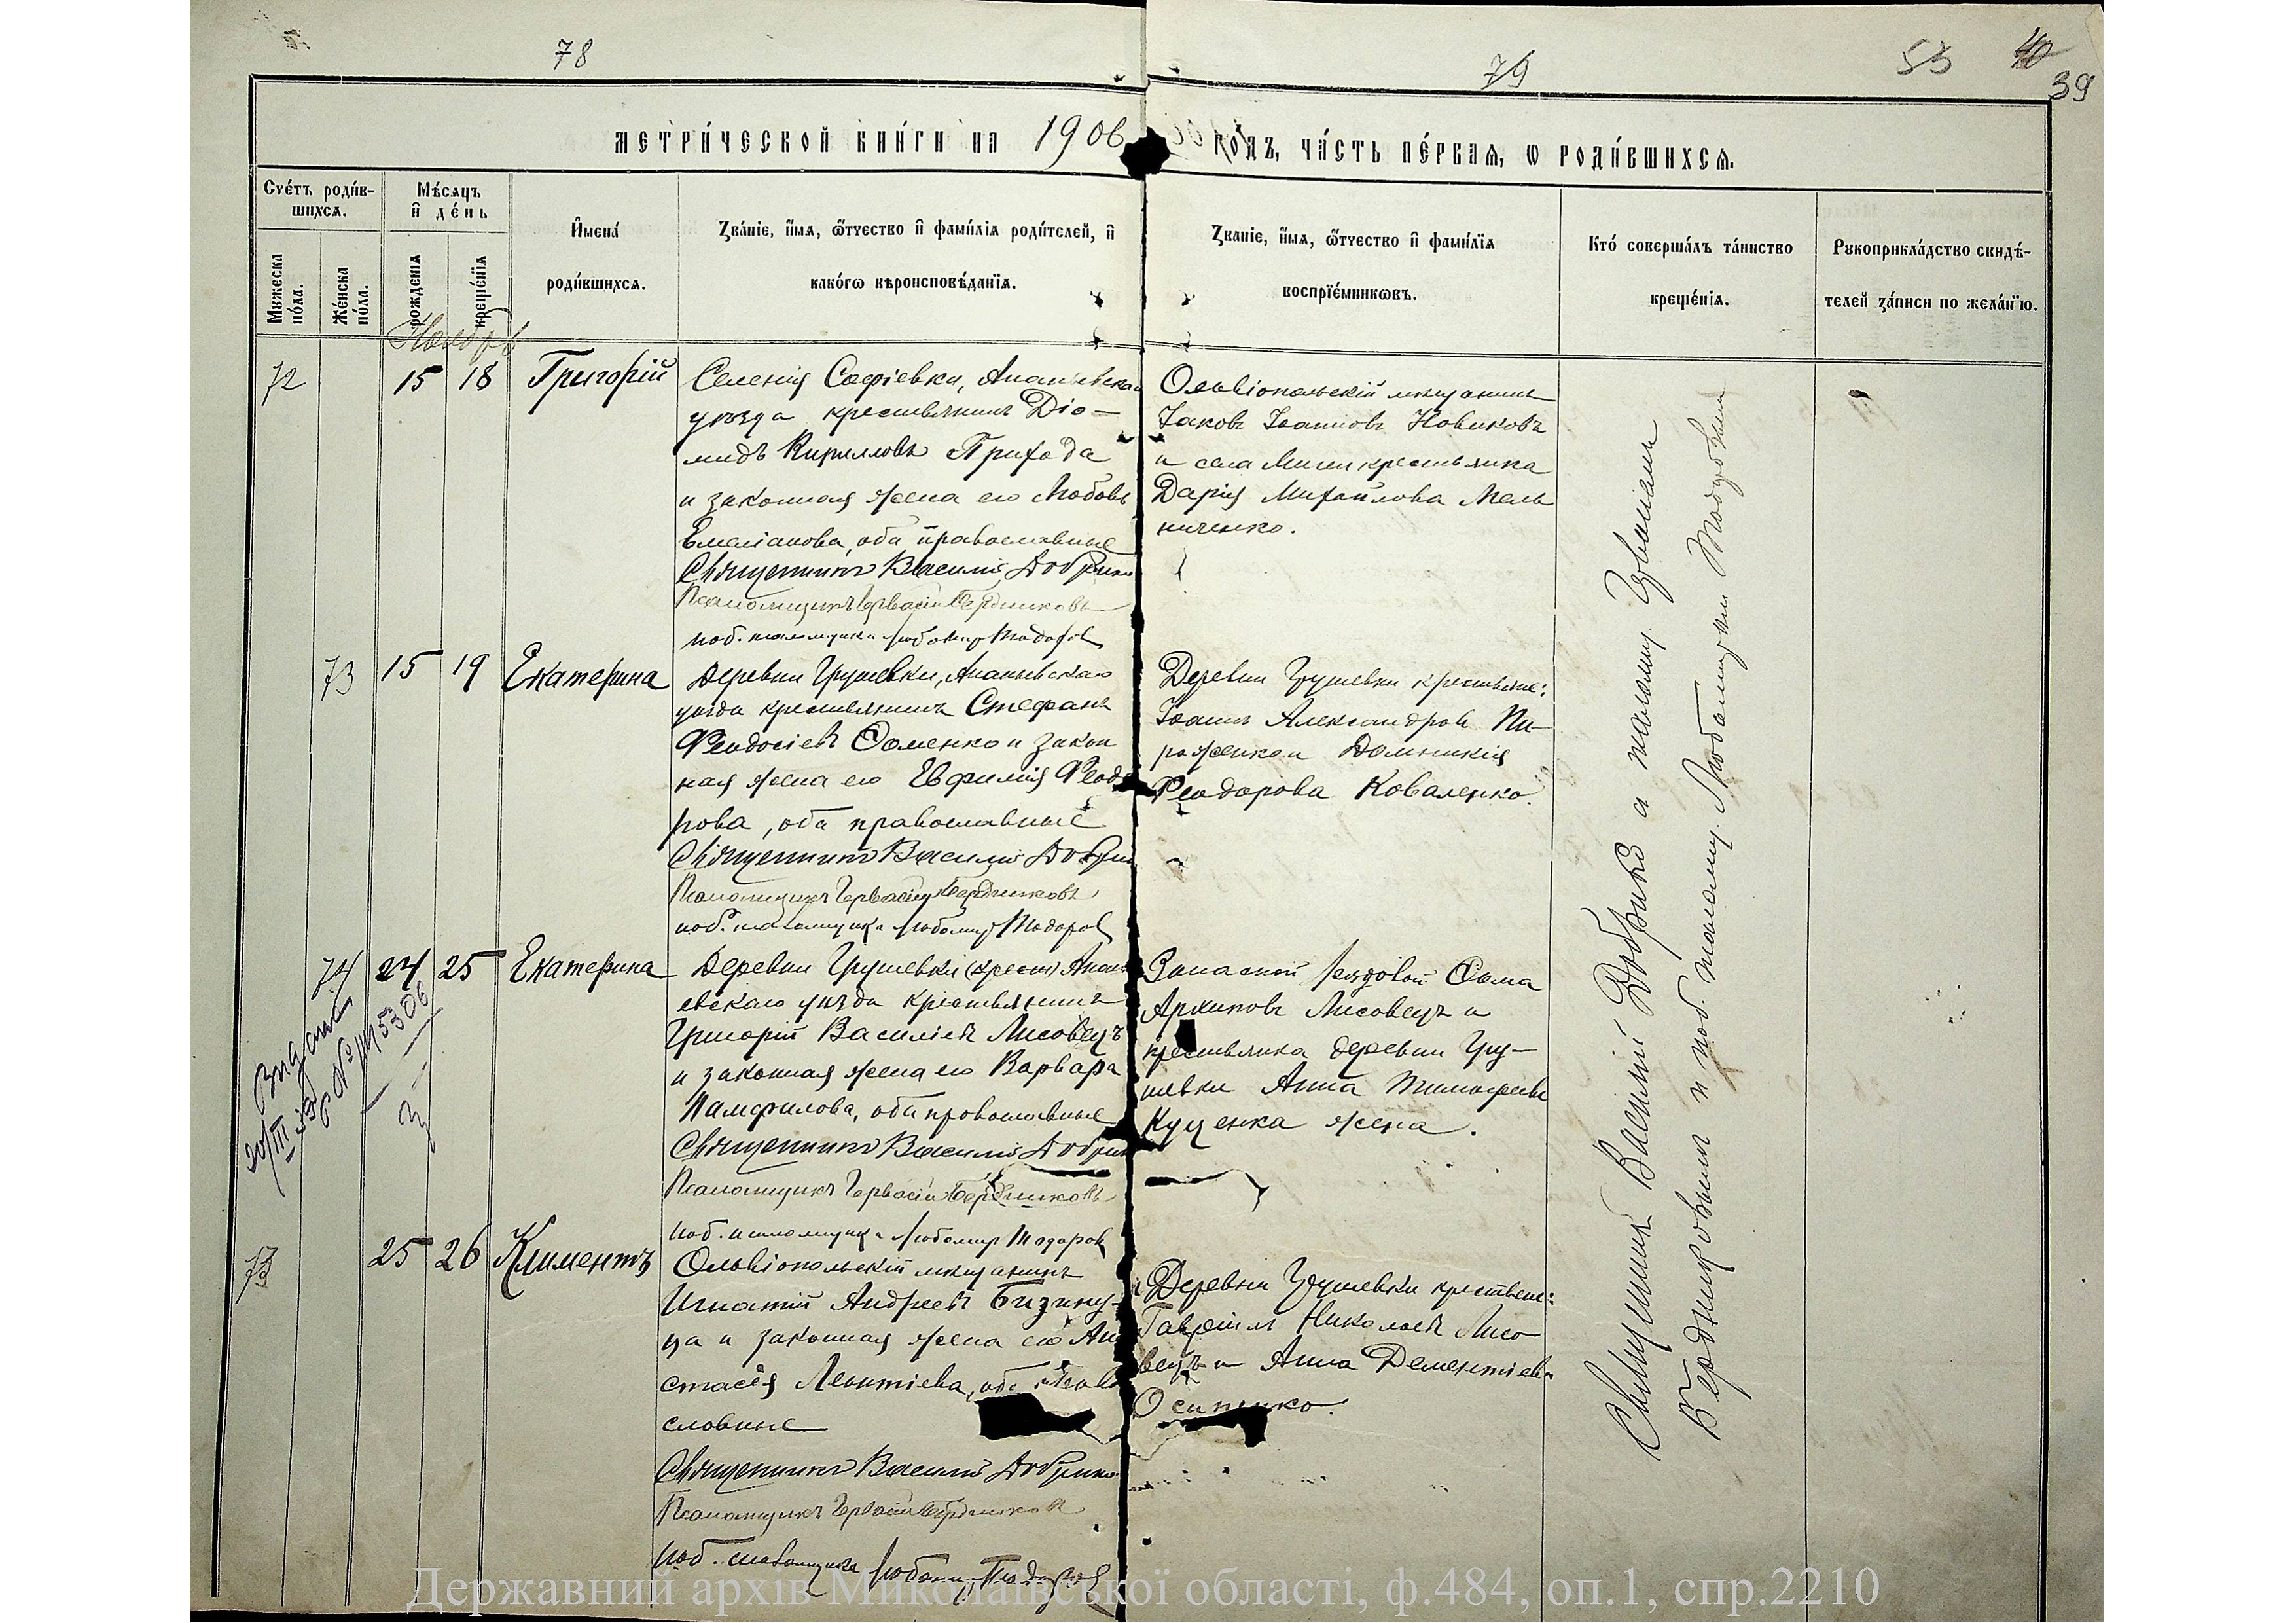 78
79
53 40
39
МЕТРИ́ЧЕСКОЙ КНИ́ГИ НА 1906 ГО́ДЪ, ЧА́СТЬ ПЕ́РВАЯ, Ѡ РОДИ́ВШИХСѦ.
Сче́тъ роди́в-
шихсѧ.
Мꙋжеска по́ла.
Же́нска по́ла.
Мѣ́сяцъ и҆ де́нь
рожденїѧ
креще́нїѧ
И҆мена́
роди́вшихсѧ.
Зва́нїе, и҆́мѧ, ѻ҆́тчество и҆ фами́лїѧ роди́телей, и҆
како́гѡ вѣроисповѣ́данїѧ.
Званїе, и҆́мѧ, ѻ҆́тчество и҆ фами́лїѧ
воспрїе́мникѡвъ.
Кто́ соверша́лъ та́инство
креще́нїѧ.
Рꙋкоприкла́дство свидѣ́-
телей за́писи по жела́нїю.
Ноябрь
72 15 18 Григорій
Селенія Софіевки, Ананьевскаго
уѣзда крестьянинъ Діо-
мидъ Кирилловъ Прихода
и законная жена его Любовь
Емеліанова, оба православные
Священникъ Василій Добрико
Псаломщикъ Гервасій Бердниковъ
поб. псаломщика Любомир Тодоров
Ольвіопольскій мѣщанинъ
Іаковъ Іоанновъ Новиковъ
и села Мигеи крестьянка
Дарія Михайлова Мель
ниченко.
73 15 19 Екатерина
Деревни Грушевки, Ананьевскаго
уѣзда крестьянинъ Стефанъ
Феодосіевъ Фоменко и закон
ная жена его Евфимія Феодо
рова, оба православные
Священникъ Василій Добрико
Псаломщикъ Гервасій Бердниковъ
поб. псаломщика Любомир Тодоров
Деревни Грушевки крестьяне:
Іоаннъ Александров Пи-
роженко и Домникія
Феодорова Коваленко.
74 24 25 Екатерина
Деревни Грушевки Анань
евскаго уѣзда крестьянинъ
Григорій Василіев Лисовецъ
и законная жена его Варвара
Памфилова, оба православные
Священникъ Василій Добрико
Псаломщикъ Гервасій Бердниковъ
поб. псаломщика Любомир Тодоров
Запасной рядовой Фома
Архиповъ Лисовецъ и
крестьянка деревни Гру-
шевки Анна Тимофеева
Куценка жена.
73 25 26 Климентъ
Ольвіопольскій мѣщанинъ
Игнатій Андреевъ Бизину-
ца и законная жена его Ана
стасія Леонтіева, оба право
славные
Священникъ Василій Добрико
Псаломщикъ Гервасій Бердников
поб. псаломщика Любомир Тодоров
Деревни Грушевки крестьяне:
Гавріилъ Николаев Лисо
вецъ и Анна Дементіева
Осипенко.
Священник Василий Добрико с псаломщ. Гервасием
Бердниковым и поб. псаломщ. Любомиром Тодоровым
Державний архів Миколаївської області, ф.484, оп.1, спр.2210